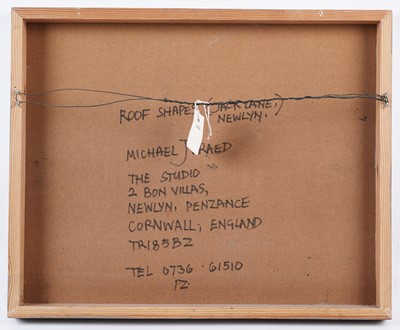 ROOF SHAPES (JACK LANE,)
NEWLYN.
MICHAEL J PRAED
THE STUDIO
2 BON VILLAS,
NEWLYN, PENZANCE
CORNWALL, ENGLAND
TR185BZ
TEL 0736 61510
PZ.